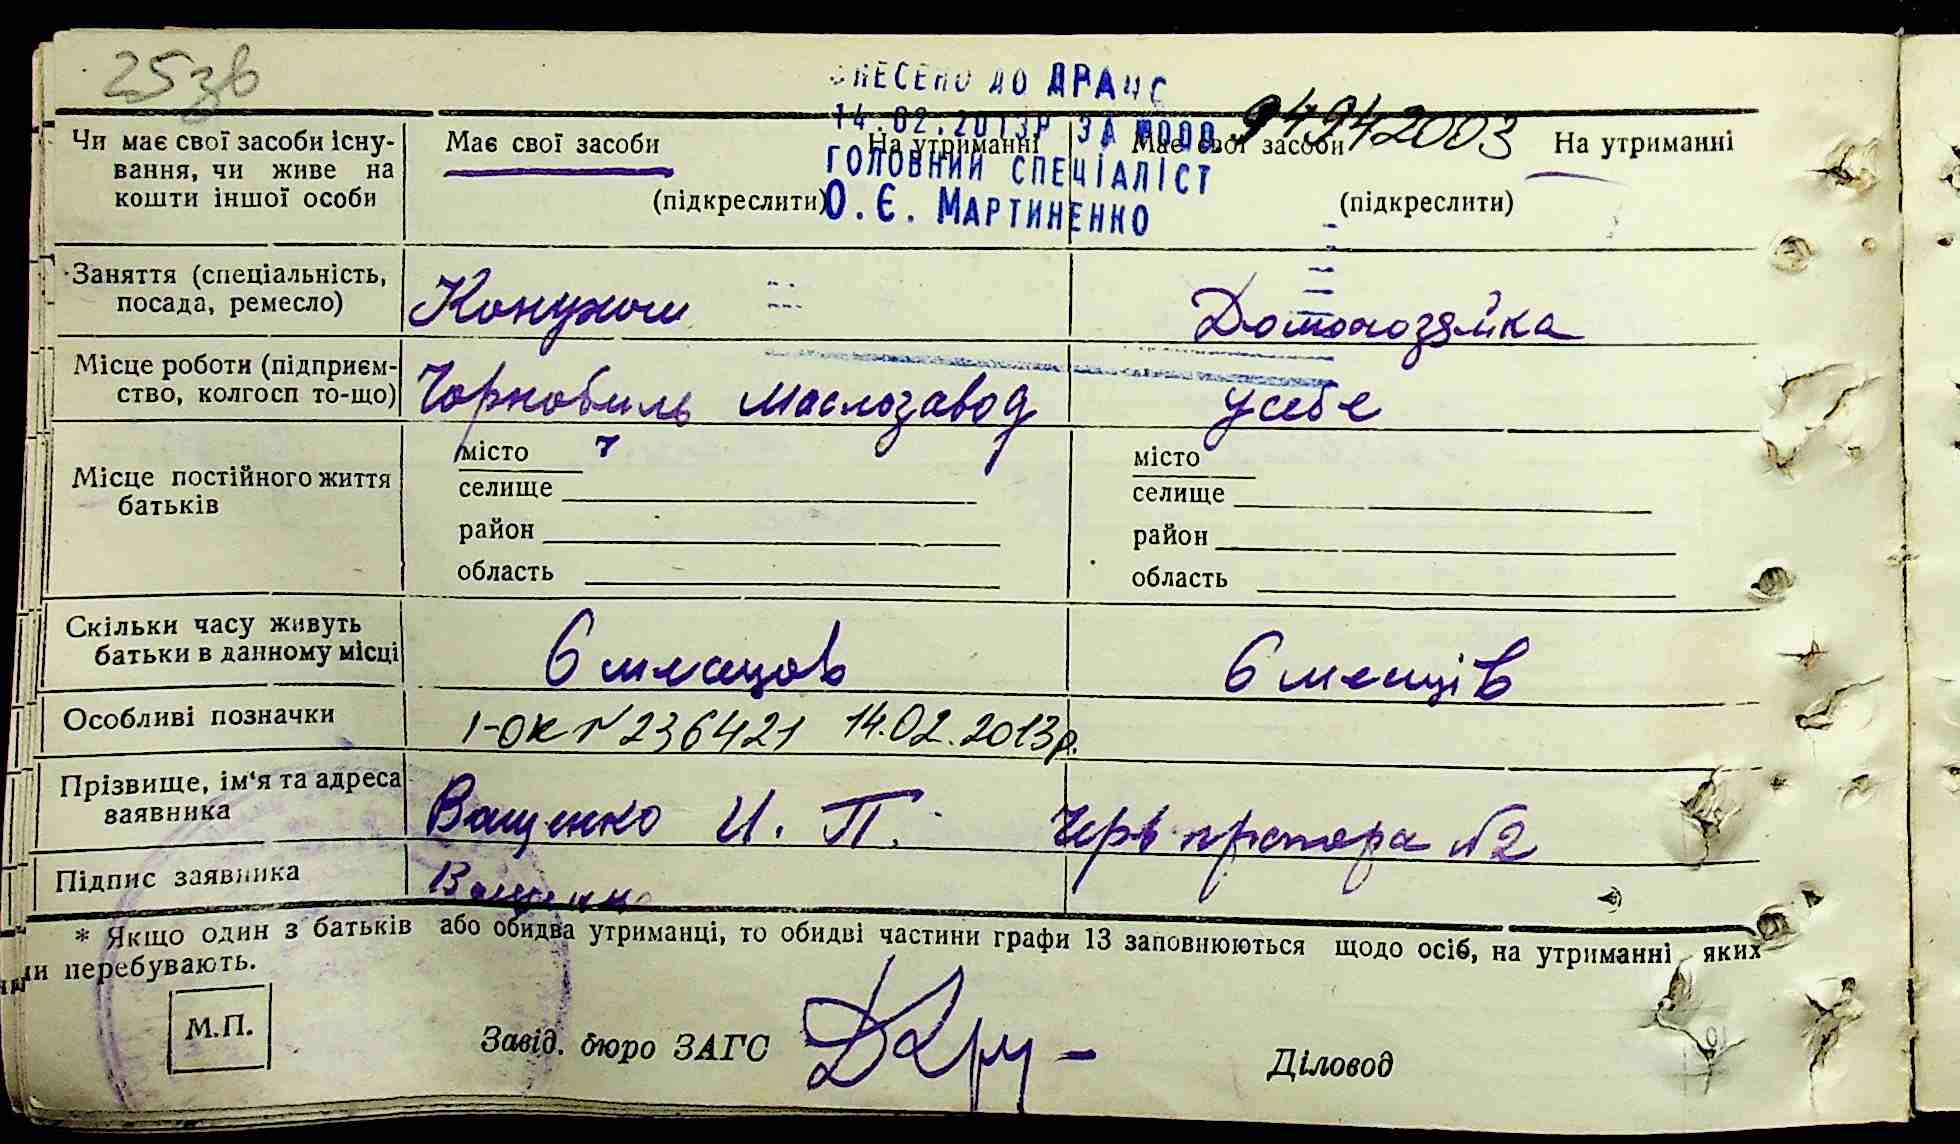 25зв
ВНЕСЕНО ДО ДРАЦС
14.02.2013р ЗА №00094942003
ГОЛОВНИЙ СПЕЦІАЛІСТ
О.Є. МАРТИНЕНКО
Чи має свої засоби існу-
вання, чи живе на
кошти іншої особи
Має свої засоби На утриманні
(підкреслити)
Має свої засоби На утриманні
(підкреслити)
Заняття (спеціальність,
посада, ремесло)
Конухом
Домохозяйка
Місце роботи (підприєм-
ство, колгосп то-що)
Чорнобиль маслозавод
усебе
Місце постійного життя
батьків
місто
селище
район
область
місто
селище
район
область
Скільки часу живуть
батьки в данному місці
6 месяцов
6 месяців
Особливі позначки
І-ОК №236421 14.02.2013р.
Прізвище, ім'я та адреса
заявника
Ващенко И. П. Черв прапора №2
Підпис заявника
Ващенко
* Якщо один з батьків або обидва утриманці, то обидві частини графи 13 заповнюються щодо осіб, на утриманні яких
ни перебувають.
М.П.
Завід. бюро ЗАГС
Діловод